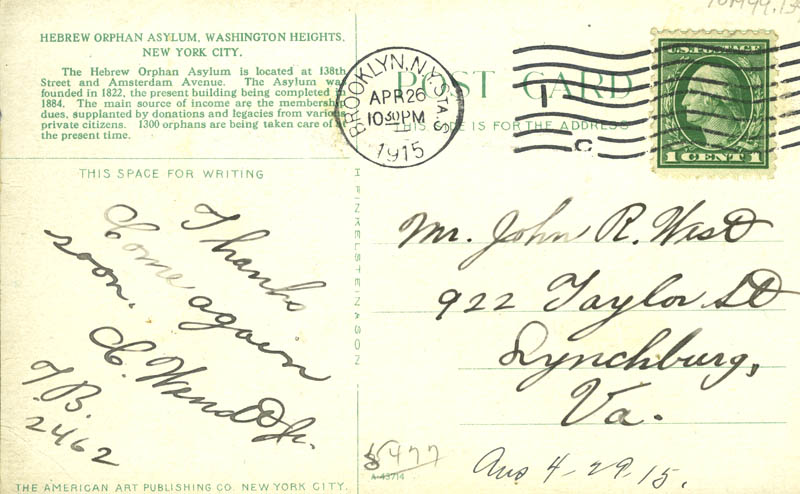 HEBREW ORPHAN ASYLUM, WASHINGTON HEIGHTS,
NEW YORK CITY.
The Hebrew Orphan Asylum is located at 138th
Street and Amsterdam Avenue. The Asylum was
founded in 1822, the present building being completed in
1884. The main source of income are the membership
dues, supplanted by donations and legacies from various
private citizens. 1300 orphans are being taken care of
the present time.
THIS SPACE FOR WRITING
Thanks
Come again
soon.
C. Wendt Jr.
T.B.
2462
THE AMERICAN ART PUBLISHING CO. NEW YORK CITY.
H FINKELSTEIN & SON
POST CARD
THIS SIDE IS FOR THE ADDRESS
BROOKLYN, N.Y. STA. S
APR 26
10 30 PM
1915
1
C
U.S. POSTAGE
1 CENT 1
Mr. John R. West
922 Taylor St
Lynchburg,
Va.
5477
A-43714
Ans 4-29-15.